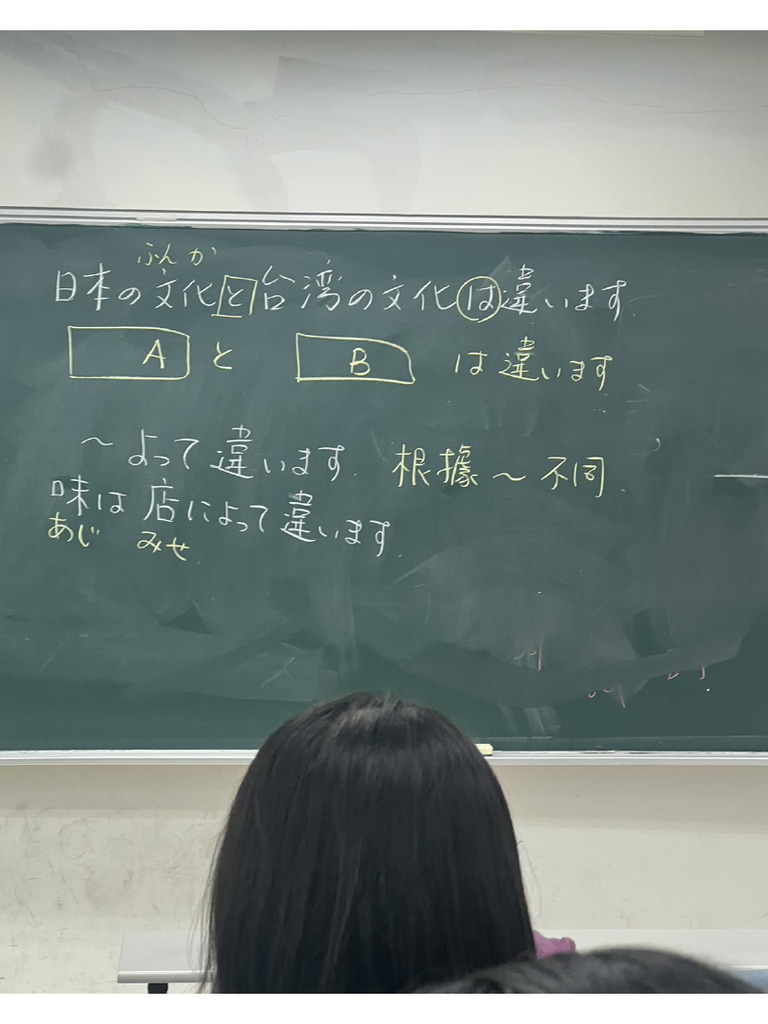 ぶんか
日本の文化と台湾の文化は違います
A と B は違います
〜よって違います. 根據〜不同.
味は店によって違います.
あじ みせ